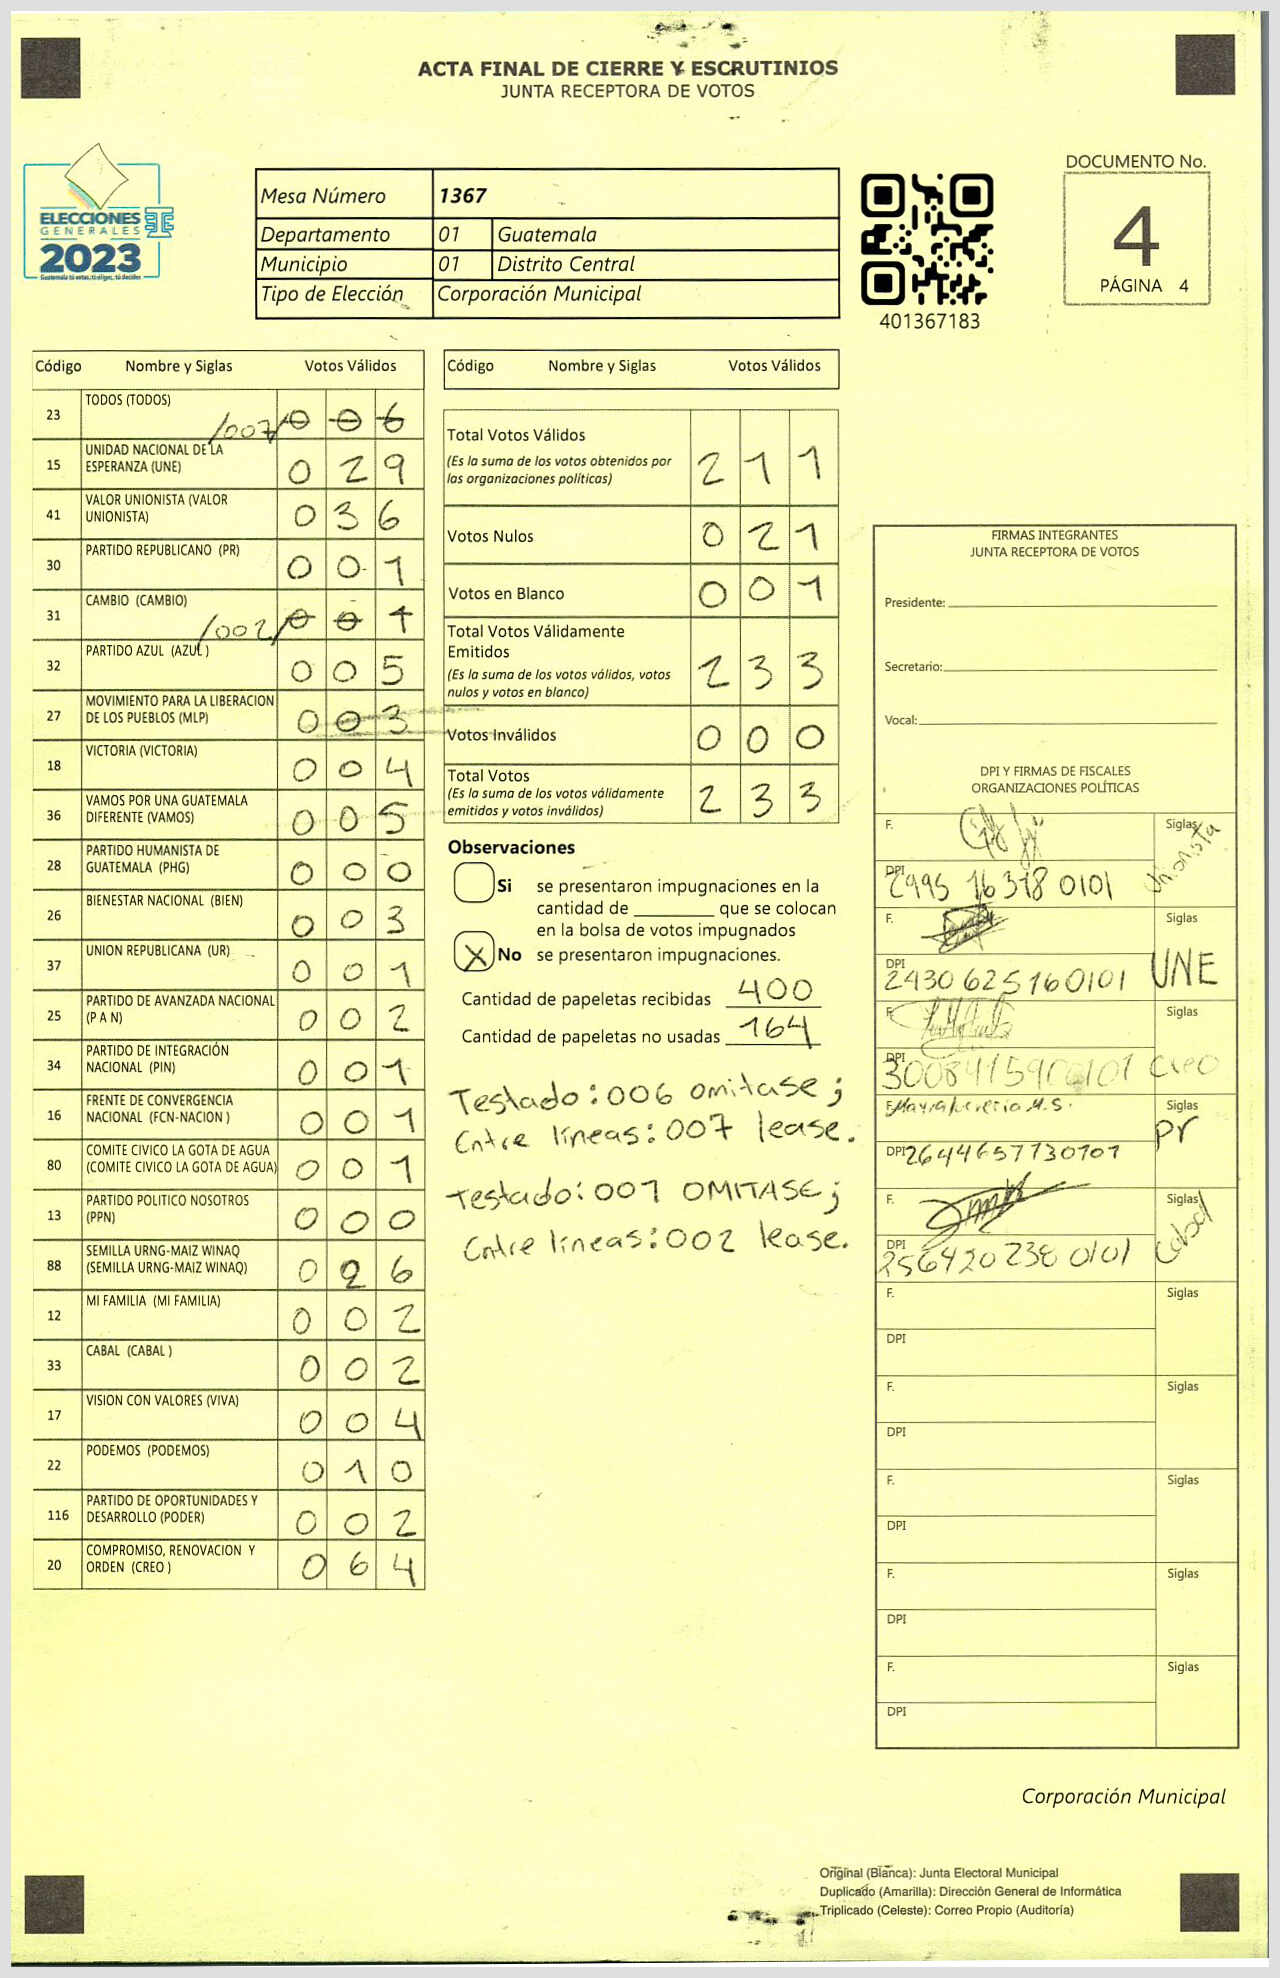 ACTA FINAL DE CIERRE Y ESCRUTINIOS
JUNTA RECEPTORA DE VOTOS
ELECCIONES
GENERALES
2023
Guatemala tú votas, tú eliges, tú decides
Mesa Número 1367
Departamento 01 Guatemala
Municipio 01 Distrito Central
Tipo de Elección Corporación Municipal
401367183
DOCUMENTO No.
4
PÁGINA 4
Código Nombre y Siglas Votos Válidos
23 TODOS (TODOS) /007/ 006
15 UNIDAD NACIONAL DE LA ESPERANZA (UNE) 029
41 VALOR UNIONISTA (VALOR UNIONISTA) 036
30 PARTIDO REPUBLICANO (PR) 001
31 CAMBIO (CAMBIO) /002/ 001
32 PARTIDO AZUL (AZUL) 005
27 MOVIMIENTO PARA LA LIBERACION DE LOS PUEBLOS (MLP) 003
18 VICTORIA (VICTORIA) 004
36 VAMOS POR UNA GUATEMALA DIFERENTE (VAMOS) 005
28 PARTIDO HUMANISTA DE GUATEMALA (PHG) 000
26 BIENESTAR NACIONAL (BIEN) 003
37 UNION REPUBLICANA (UR) 001
25 PARTIDO DE AVANZADA NACIONAL (P A N) 002
34 PARTIDO DE INTEGRACIÓN NACIONAL (PIN) 001
16 FRENTE DE CONVERGENCIA NACIONAL (FCN-NACION ) 001
80 COMITE CIVICO LA GOTA DE AGUA (COMITE CIVICO LA GOTA DE AGUA) 001
13 PARTIDO POLITICO NOSOTROS (PPN) 000
88 SEMILLA URNG-MAIZ WINAQ (SEMILLA URNG-MAIZ WINAQ) 026
12 MI FAMILIA (MI FAMILIA) 002
33 CABAL (CABAL ) 002
17 VISION CON VALORES (VIVA) 004
22 PODEMOS (PODEMOS) 010
116 PARTIDO DE OPORTUNIDADES Y DESARROLLO (PODER) 002
20 COMPROMISO, RENOVACION Y ORDEN (CREO ) 064
Código Nombre y Siglas Votos Válidos
Total Votos Válidos 211
(Es la suma de los votos obtenidos por
las organizaciones políticas)
Votos Nulos 021
Votos en Blanco 001
Total Votos Válidamente
Emitidos 233
(Es la suma de los votos válidos, votos
nulos y votos en blanco)
Votos Inválidos 000
Total Votos 233
(Es la suma de los votos válidamente
emitidos y votos inválidos)
Observaciones
Si se presentaron impugnaciones en la
cantidad de ________ que se colocan
en la bolsa de votos impugnados
X No se presentaron impugnaciones.
Cantidad de papeletas recibidas 400
Cantidad de papeletas no usadas 164
Testado: 006 omitase;
Entre líneas: 007 lease.
Testado: 001 OMITASE;
Entre líneas: 002 lease.
FIRMAS INTEGRANTES
JUNTA RECEPTORA DE VOTOS
Presidente:
Secretario:
Vocal:
DPI Y FIRMAS DE FISCALES
ORGANIZACIONES POLÍTICAS
F. Siglas Unionista
DPI 2995 16318 0101
F. Siglas UNE
DPI 2430 62516 0101
F. Siglas Creo
DPI 3008415900101
F. Siglas PR
DPI 2644657730101
F. Siglas Cabal
DPI 256420238 0101
F. Siglas
DPI
F. Siglas
DPI
F. Siglas
DPI
F. Siglas
DPI
F. Siglas
DPI
Corporación Municipal
Original (Blanca): Junta Electoral Municipal
Duplicado (Amarilla): Dirección General de Informática
Triplicado (Celeste): Correo Propio (Auditoría)